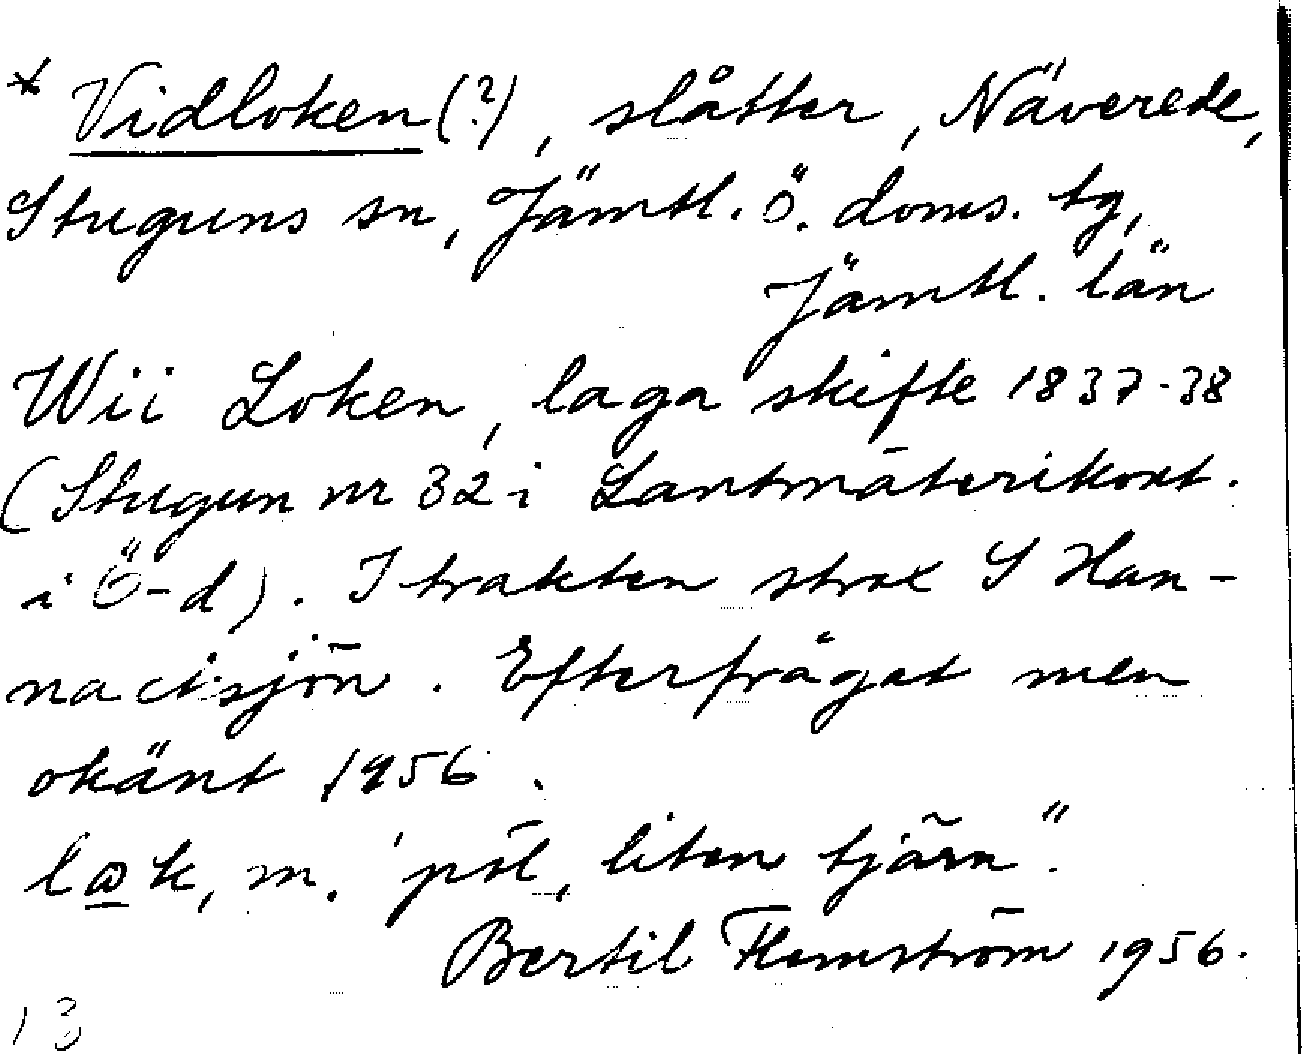 * Vidloken (?), slåtter, Näverede,
Stuguns sn, Jämtl. ö. doms. tg,
Jämtl. län
Wii Loken, laga skifte 1837-38
(Stugun nr 32 i Lantmäterikont.
i Ö-d). I trakten strax S Han-
nactsjön. Efterfrågat men
okänt 1956.
læk, m. 'pöl, liten tjärn".
Bertil Flemström 1956.
13